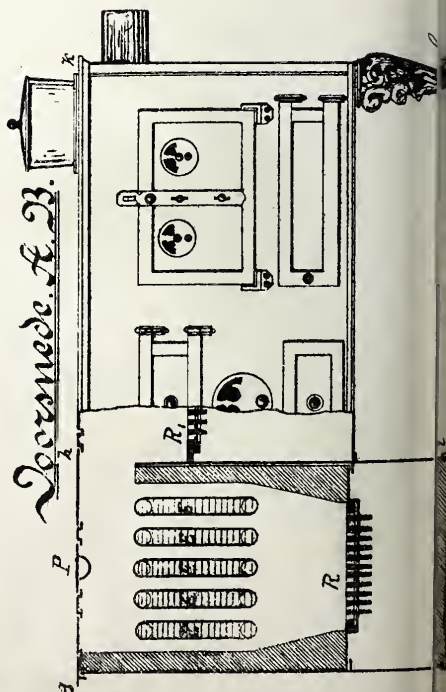 Doorsnede. A. B.
K
h
P
g
R₁
R